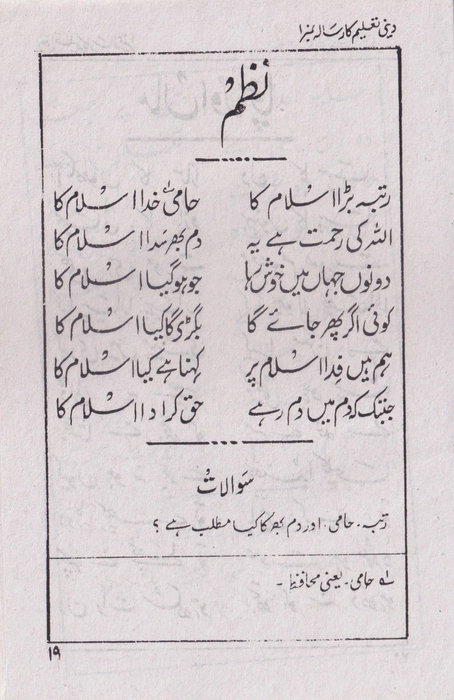 دینی تعلیم کا رسالہ نمبر ۱
نظم
رتبہ بڑا اسلام کا حامیٔ خدا اسلام کا
اللہ کی رحمت ہے یہ دم بھر سدا اسلام کا
دونوں جہاں میں خوش رہا جو ہو گیا اسلام کا
کوئی اگر پھر جائے گا بگڑے گا کیا اسلام کا
ہم ہیں فِدا اسلام پر کہنا ہے کیا اسلام کا
جبتک کہ دم میں دم رہے حق کر ادا اسلام کا
سوالات
رتبہ۔ حامی۔ اور دم بھر کا کیا مطلب ہے ؟
لہ حامی۔ یعنی محافظ۔
۱۹